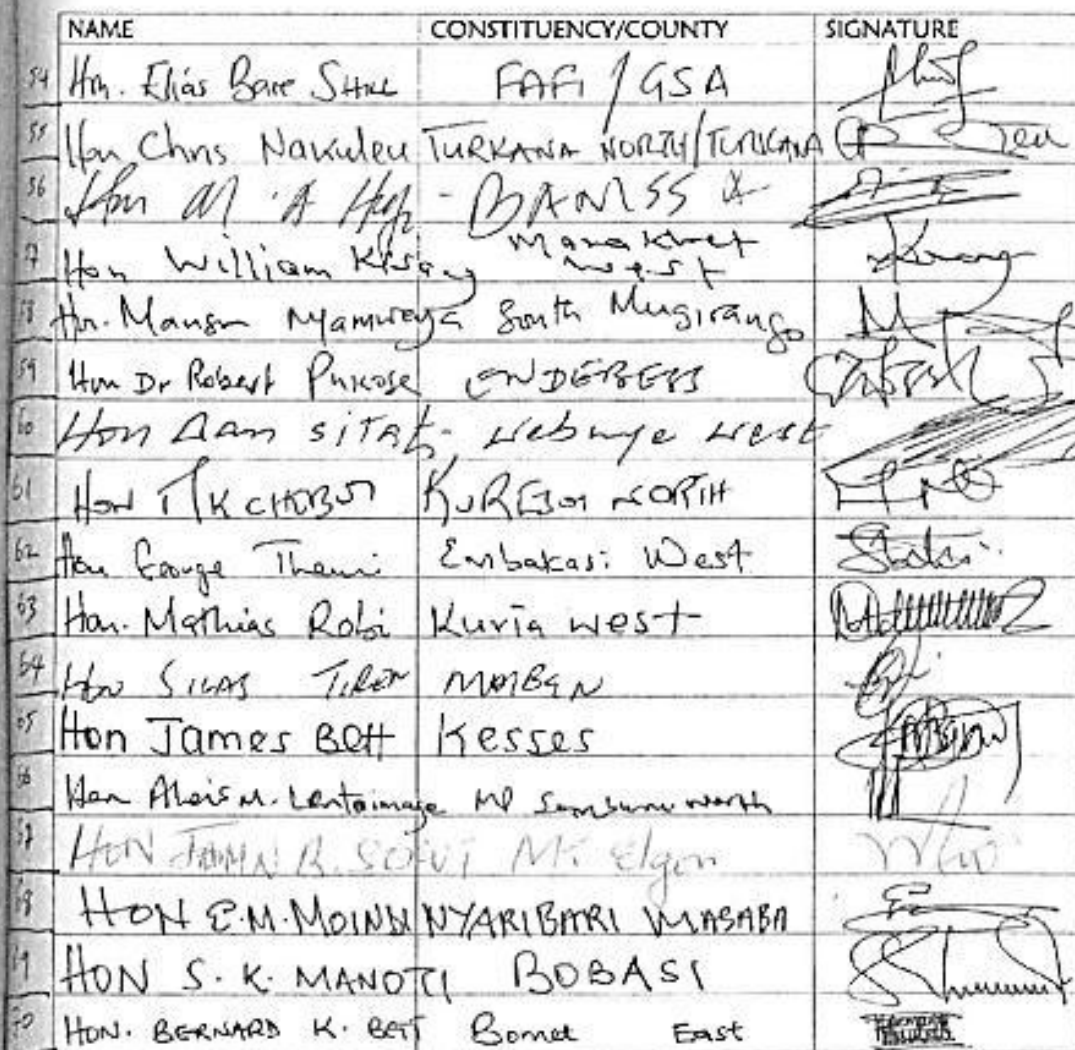 NAME CONSTITUENCY/COUNTY SIGNATURE
54 Hon. Elias Bare Shill FAFI / GSA
55 Hon Chris Nakuleu TURKANA NORTH/TURKANA
56 Hon M. A
57 Hon William Kisang Marakwet west
58 Hon. Manson Nyamweya South Mugirango
59 Hon Dr Robert Pukose ENDEBESS
60 Hon Dan sitati - webuye west
61 Hon M K CHEBOI KURESOI NORTH
62 Hon George Theuri Embakasi West
63 Hon. Mathias Robi Kuria west
64 Hon SILAS TIREN MOIBEN
65 Hon James Bett Kesses
66 Hon Alois M. Lentoimaga MP Samburu north
67 HON JOHN B. SERUT Mt Elgon
68 HON E.M. MOINDI NYARIBARI MASABA
69 HON S. K. MANOTI BOBASI
70 HON. BERNARD K. BETT Bomet East